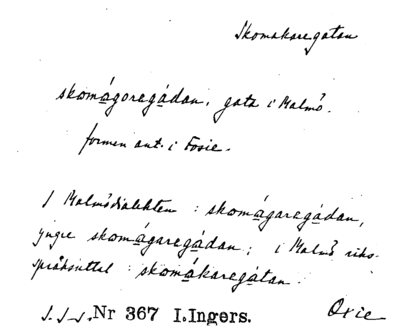 Skomakaregatan
skomágoregádan, gata i Malmö.
formen ant. i Fosie.
I Malmödialekten : skomágaregádan,
yngre skomágaregádan; i Malmö riks-
språksuttal : skomákaregátan.
I. I-s. Nr 367 I.Ingers. Oxie